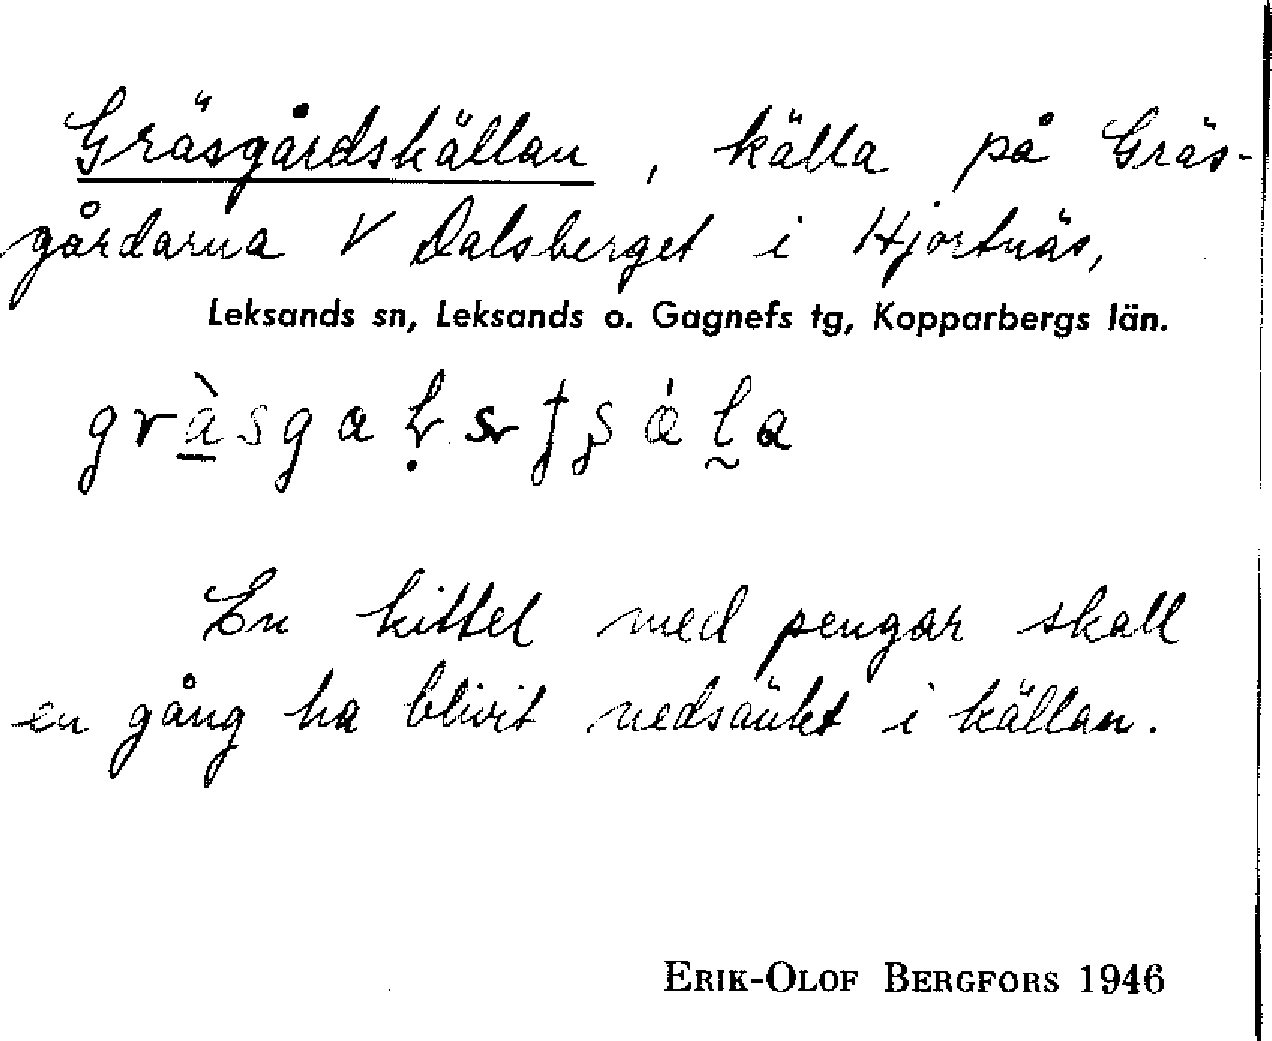 Gräsgårdskällan, källa på Gräs-
gårdarna V Dalsberget i Hjortnäs,
Leksands sn, Leksands o. Gagnefs tg, Kopparbergs län.
En kittel med pengar skall
en gång ha blivit nedsänkt i källan.
ERIK-OLOF BERGFORS 1946